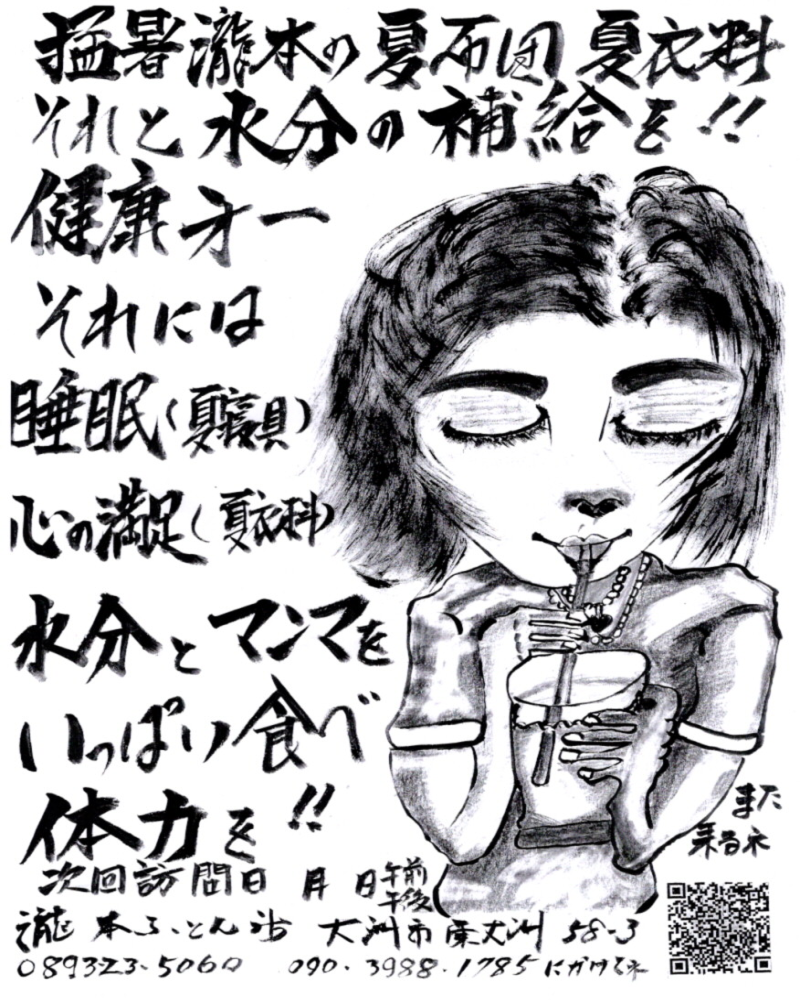 猛暑瀧本の夏布団 夏衣料
それと水分の補給を!!
健康才一
それには
睡眠(夏寝具)
心の満足(夏衣料)
水分とマンマを
いっぱい食べ
体力を!!
また
来るネ
次回訪問日 月 日 午前
午後
瀧本ふとん 大洲市東大洲 58-3
089323-5060 090-3988-1785 にかけてネ